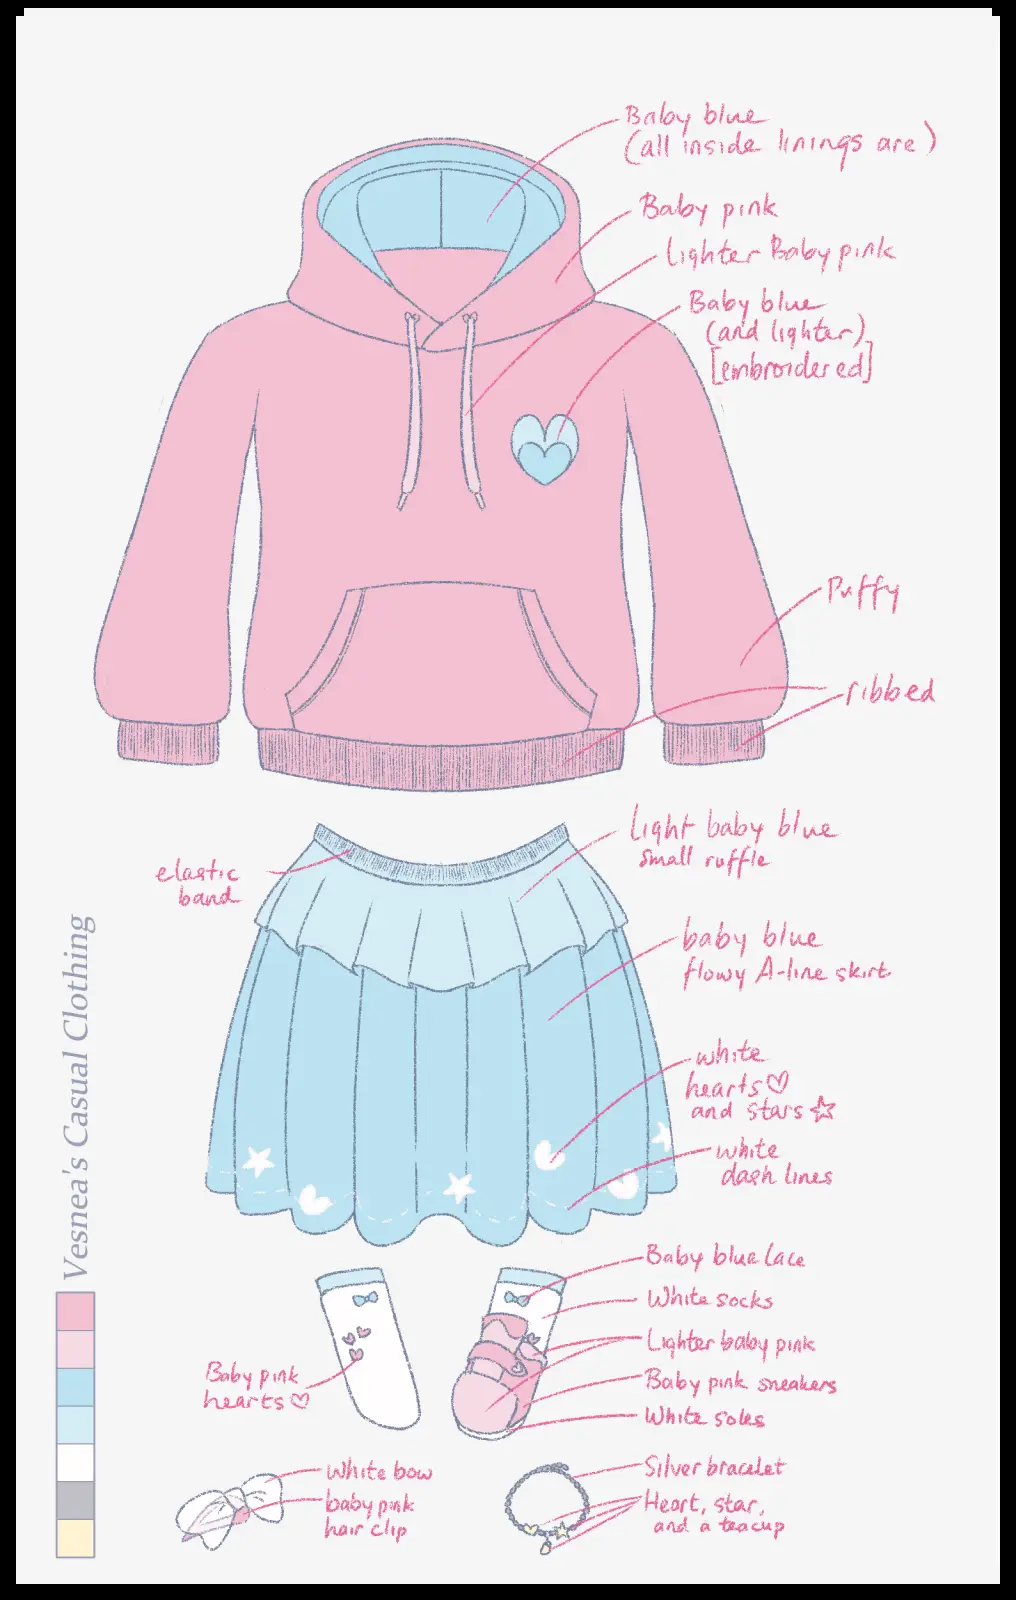 Baby blue
(all inside linings are)
Baby pink
Lighter Baby pink
Baby blue
(and lighter)
[embroidered]
Puffy
ribbed
light baby blue
small ruffle
elastic
band
baby blue
flowy A-line skirt
white
hearts♡
and stars☆
white
dash lines
Vesnea's Casual Clothing
Baby blue lace
White socks
Lighter baby pink
Baby pink sneakers
White soles
Baby pink
hearts♡
White bow
baby pink
hair clip
Silver bracelet
Heart, star,
and a teacup